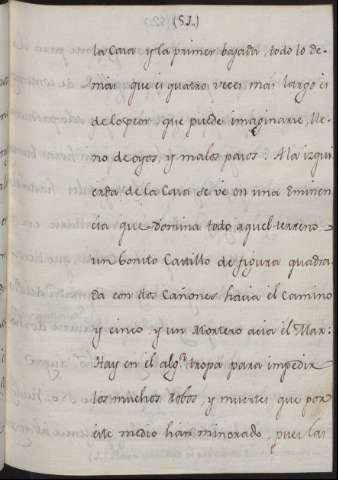 (51.)
la Cava y la primer bajada, todo lo de-
mas que es quatro veces mas largo es
de lo peor que puede imaginarse, lle-
no de oyos, y malos pasos: A la izqui
erda de la Cava se ve en una Eminen
cia que domina todo aquel terreno
un bonito Castillo de figura quadra-
da con dos Cañones hacia el Camino
y cinco y un Mortero acia el Mar:
Hay en el algª. tropa para impedir
los muchos robos, y muertes que por
este medio hán minorado, pues las